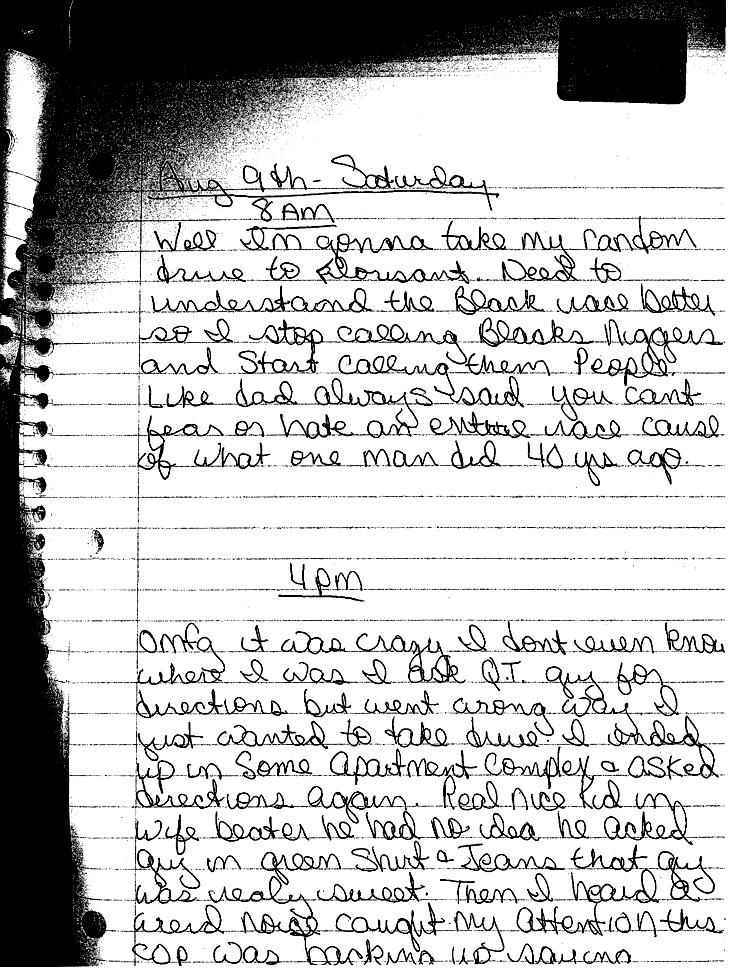 Aug 9th - Saturday
8 AM
Well Im gonna take my random
drive to Florisant. Need to
understand the Black race better
so I stop calling Blacks Niggers
and Start calling them People.
Like dad always said you cant
fear or hate an entire race cause
of what one man did 40 yrs ago.
4 pm
Omfg it was crazy I dont even know
where I was I ask Q.T. guy for
directions but went wrong way I
just wanted to take drive I ended
up in Some Apartment Complex & ASKED
directions again. Real nice kid in
wife beater he had no idea he asked
guy in green Shirt & Jeans that guy
was realy sweet. Then I heard a
weird noise caught My Attention this
cop was backing up saying